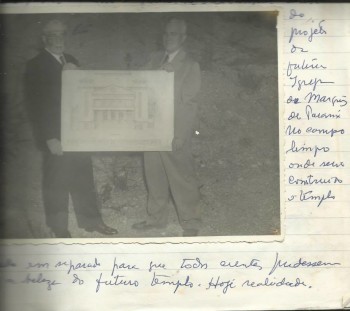 do
projeto
da
futura
Igreja
de Marquês
de Paraná
No campo
limpo
onde seria
construido
o templo
em separado para que todos crentes pudessem
a beleza do futuro templo. Hoje realidade.